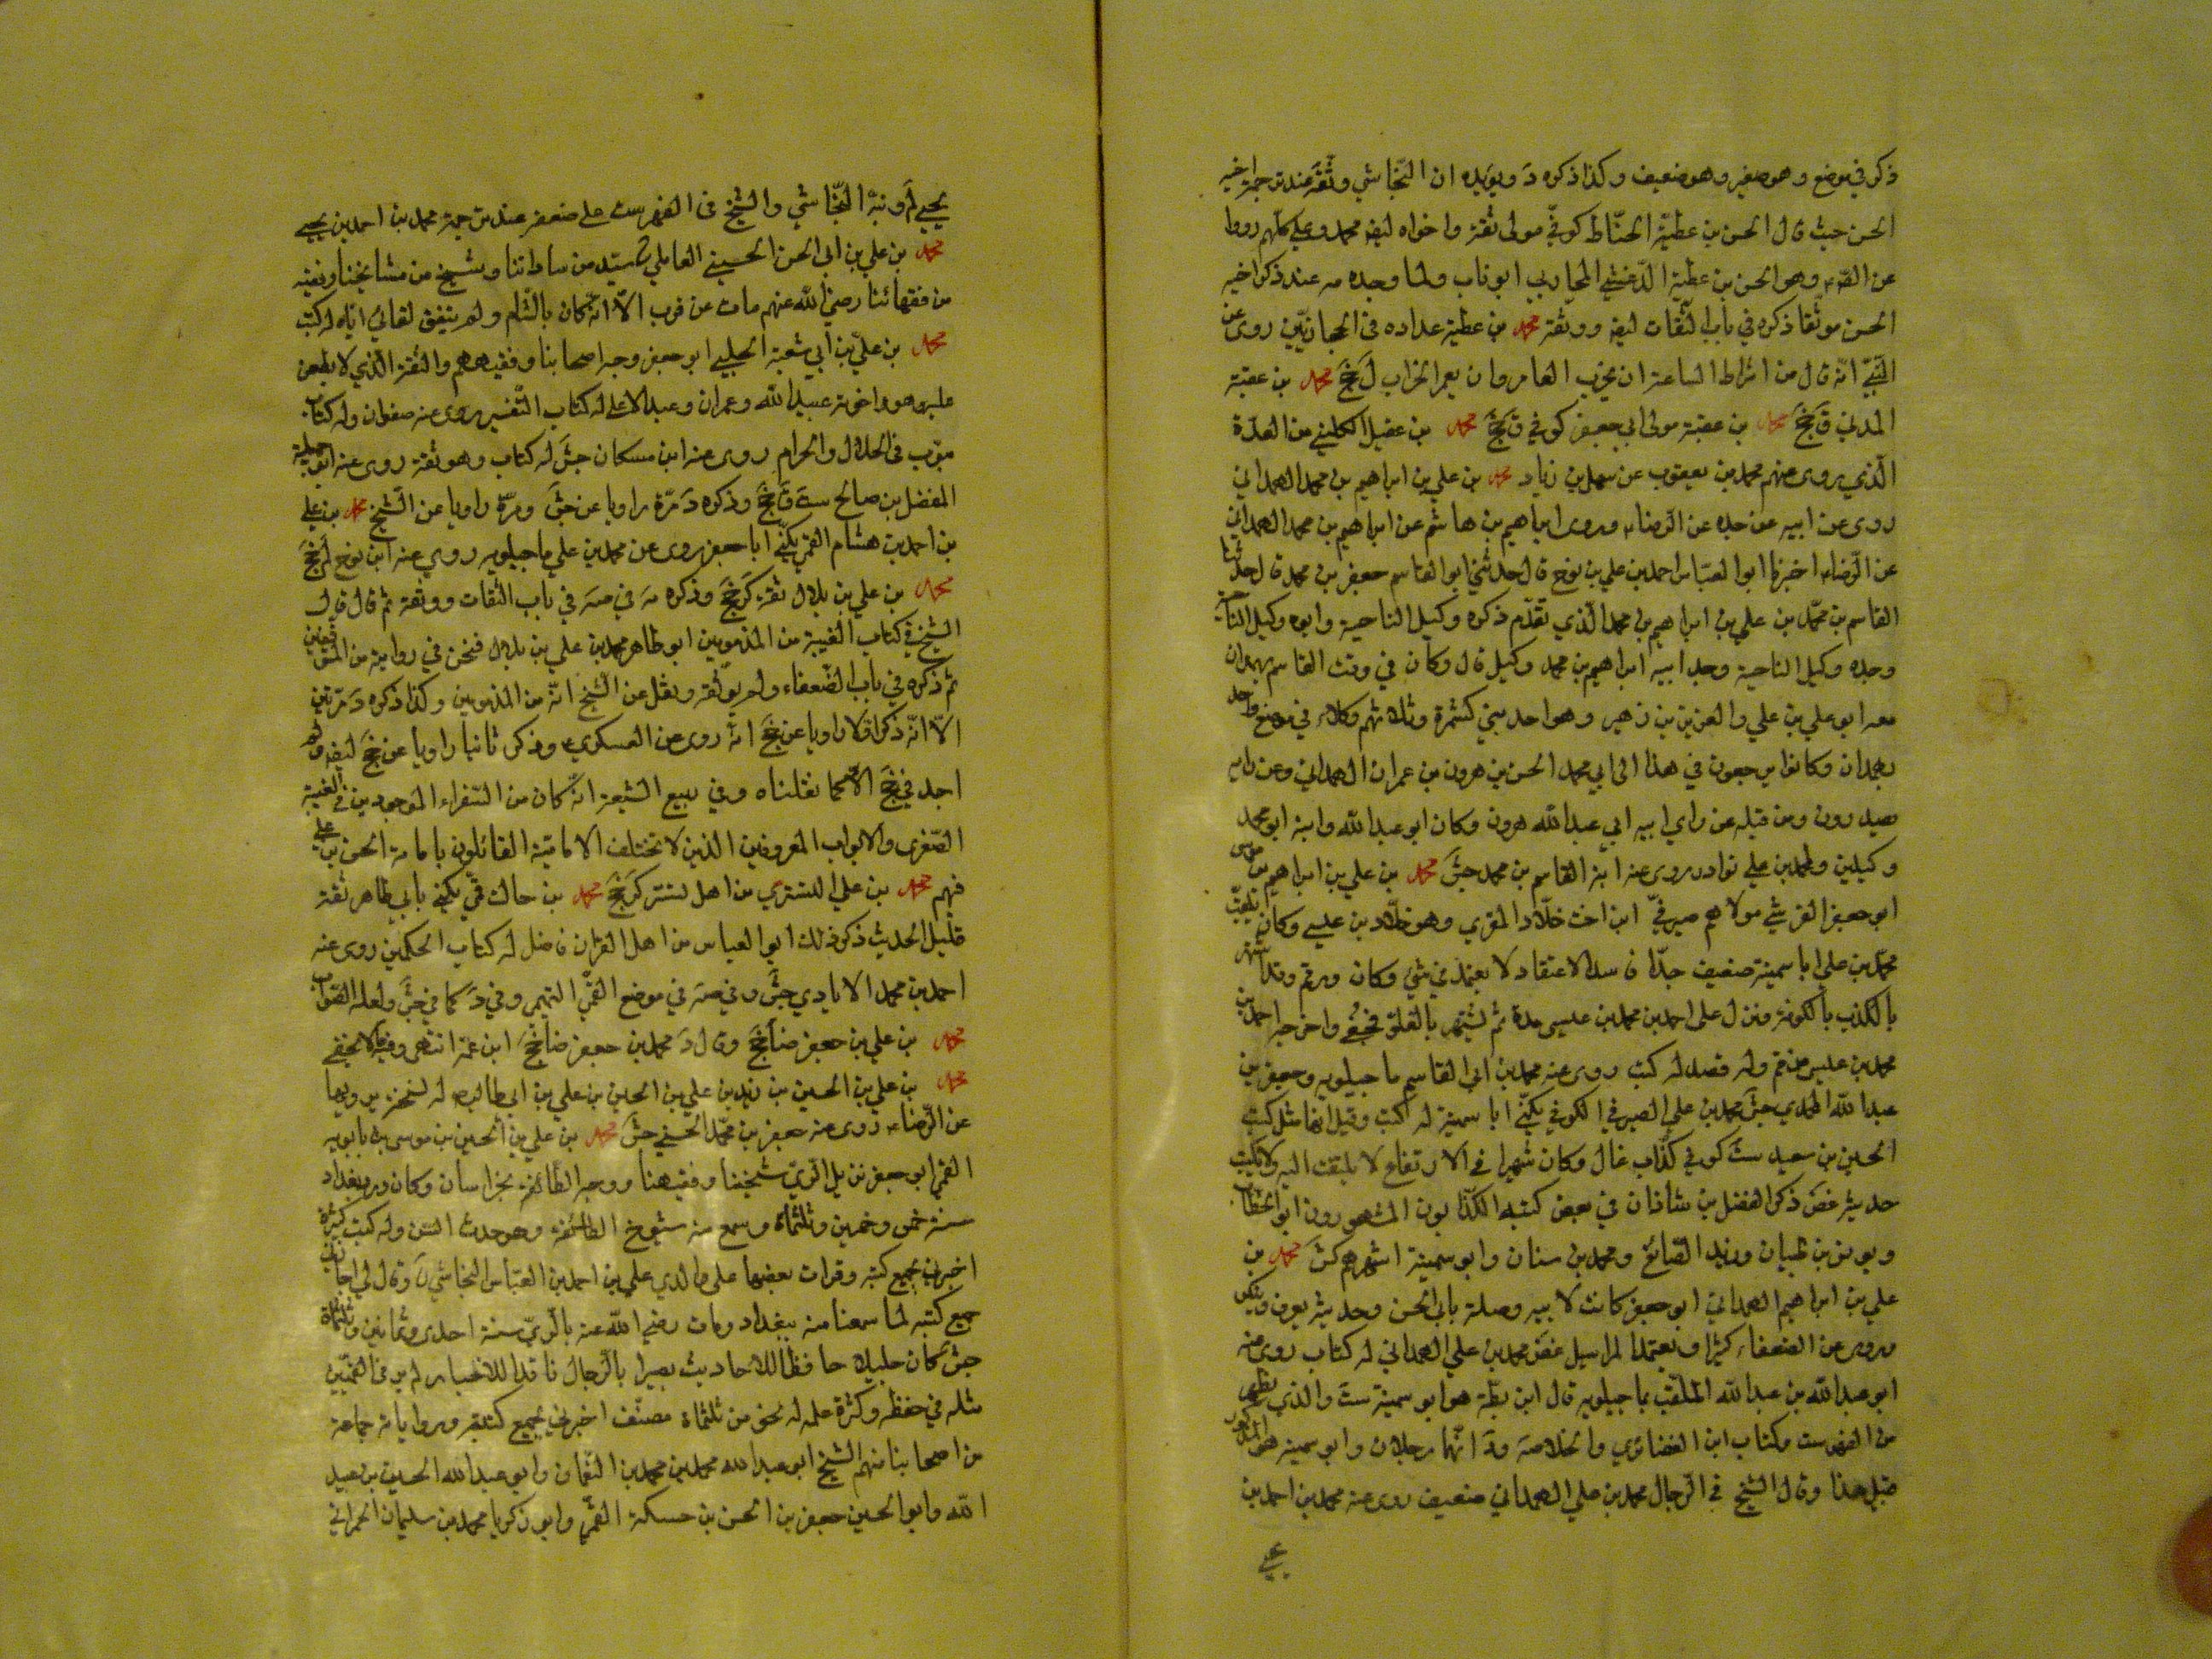 ذكر في موضع وهو صغير وهو ضعيف وكذا ذكره دَ ويؤيده ان النّجاشي وثّقه عند ترجمة اخيه
الحسن حيث قال الحسن بن عطيّة الحنّاط كوفيّ مولى ثقة واخواه ايضا محمد وعلي كلّهم رووا
عن الصّ وهو الحسن بن عطية الدغشي المحاربي ابو ناب ولما وجده عند ذكر اخيه
الحسن موثّقا ذكره في باب الثّقات ايضا ووثّقه محمد بن عطية عداده في روى عن
النّبيّ انّه قال من اشراط الساعة ان يخرب العامر وان يعمر الخراب ل جخ محمد بن عقبة
المدني ق جخ محمد بن عقبة مولى ابي جعفر كوفي ق جخ محمد بن عقيل الكليني من العدّة
الّذي يروى عنهم محمد بن يعقوب عن سهل بن زياد محمد بن علي بن ابراهيم بن محمد الهمداني
روى عن ابيه عن جده عن الرّضاء وروى ابراهيم بن هاشم عن ابراهيم بن محمد الهمداني
عن الرّضاء اخبرنا ابو العبّاس احمد بن علي بن نوح قال حدثني ابو القاسم جعفر بن محمد قال حدثنا
القاسم بن محمّد بن علي بن ابراهيم بن محمد الّذي تقدّم ذكره وكيل الناحية وابوه وكيل الناحية
وجده وكيل الناحية وجد ابيه ابراهيم بن محمد وكيل قال وكان في وقت القاسم بهمدان
معه ابو علي بن علي والعزيز بن زهير وهو احد بني كشمرة وثلاثتهم وكلاء في موضع واحد
بهمدان وكانوا يرجعون في هذا الى ابي محمد الحسن بن هرون بن عمران الهمداني وعن رايه
يصدرون ومن قبله عن راي ابيه ابي عبد الله هرون وكان ابو عبد الله وابنه ابو محمد
وكيلين ولمحمد بن علي نوادر روى عنه ابنه القاسم بن محمد جش محمد بن علي بن ابراهيم بن موسى
ابو جعفر القرشي مولاهم صيرفيّ ابن اخت خلّاد المقري وهو خلّاد بن عيسى وكان يلقّب
محمّد بن علي ابا سمينة ضعيف جدّا فاسد الاعتقاد لا يعتمد في شئ وكان ورد قم وقد اشتهر
بالكذب بالكوفة ونزل على احمد بن محمد بن عيسى مدة ثم تشهر بالغلوّ فجُفي واخرجه احمد بن
محمد بن عيسى من قم وله قصد له كتب روى عنه محمد بن ابي القاسم ماجيلويه وجعفر بن
عبد الله المحمدي جش محمد بن علي الصيرفي الكوفي يكنّى ابا سمينة له كتب وقيل انها مثل كتب
الحسين بن سعيد ست كوفي كذّاب غال وكان شهيرا في الارتفاع لا يلتفت اليه ولا يكتب
حديثه غض ذكر الفضل بن شاذان في بعض كتبه الكذّابون المشهورون ابو الخطاب
ويونس بن ظبيان ويزيد الصّائغ ومحمد بن سنان وابو سمينة اشهرهم كش محمد بن
علي بن ابراهيم الهمداني ابو جعفر كانت لابيه وصلة بابي الحسن وحديثه يعرف وينكر
ويروى عن الضعفاء كثيرا ويعتمد المراسيل غض محمد بن علي الهمداني له كتاب روى عنه
ابو عبد الله بن عبد الله الملقّب بماجيلويه قال ابن بطّة هو ابو سمينة ست والذي يظهر
من الفهرست وكتاب ابن الغضائري والخلاصة ود انّهما رجلان وابو سمينة هو المذكور
قبل هذا وقال الشيخ في الرّجال محمد بن علي الهمداني ضعيف روى عنه محمد بن احمد بن
يحيى لم ونبّه النّجاشي والشّيخ في الفهرست على ضعفه عند ترجمة محمد بن احمد بن يحيى
محمد بن علي بن ابي الحسن الحسيني العاملي سيّد من ساداتنا وشيخ من مشايخنا وفقيه
من فقهائنا رضي الله عنهم مات عن قرب الّا انّه كان بالشّام ولم يتفق لقائي ايّاه له كتب
محمد بن عليّ بن ابي شعبة الحلبي ابو جعفر وجه اصحابنا وفقيههم والثقة الّذي لا يطعن
عليه هو واخوته عبيد الله وعمران وعبد الاعلى له كتاب التّفسير روى عنه صفوان وله كتاب
مبوّب في الحلال والحرام روى عنه ابن مسكان جش له كتاب وهو ثقة روى عنه ابو جميلة
المفضل بن صالح ست ق جخ وذكره دَ مرّة راويا عن جش ومرّة راويا عن الشّيخ محمد بن علي
بن احمد بن هشام القمّي يكنّى ابا جعفر روى عن محمد بن علي ماجيلويه روى عنه ابن نوح لم جخ
محمد بن علي بن بلال ثقة كر جخ وذكره في صه في باب الثقات ووثقه ثم قال قال
الشيخ في كتاب الغيبة من المذمومين ابو طاهر محمد بن علي بن بلال فنحن في روايته من المتوقفين
ثم ذكره في باب الضّعفاء ولم يوثّقه ونقل عن الشّيخ انّه من المذمومين وكذا ذكره دَ مرّتين
الّا انّه ذكر اوّلا راويا عن جخ انّه روى عن العسكري وذكر ثانيا راويا عن جخ ايضا ولم
اجد في جخ الّا كما نقلناه وفي ربيع الشّيعة انّه كان من السّفراء الموجودين في الغيبة
الصّغرى والابواب المعروفين الذين لا تختلف الاماميّة القائلون بامامة الحسن بن علي
فيهم محمد بن علي التستري من اهل تستر كر جخ محمد بن جاك قمّي يكنى بابي طاهر ثقة
قليل الحديث ذكر ذلك ابو العباس من اهل القرآن فاضل له كتاب الحكمين روى عنه
احمد بن محمد الايادي جش وفي صه في موضع القمّي التهمى وفي د كما في جش ولعله الصّواب
محمد بن علي بن جعفر ضا جخ وقال دَ محمد بن جعفر ضا جخ ابن عمّه انتهى وفيه ما لا يخفى
محمد بن علي بن الحسين بن زيد بن علي بن الحسين بن علي بن ابي طالب له نسخة يرويها
عن الرّضاء روى عنه جعفر بن محمّد الحسيني جش محمد بن علي بن الحسين بن موسى بن بابويه
القمّي ابو جعفر نزيل الرّيّ شيخنا وفقيهنا ووجه الطّائفة بخراسان وكان ورد بغداد
سنة خمس وخمسين وثلثمأة وسمع منه شيوخ الطائفة وهو حدث السّن وله كتب كثيرة
اخبرني بجميع كتبه وقرأت بعضها على والدي علي بن احمد بن العبّاس النّجاشي رَ وقال لي اجازني
جميع كتبه لما سمعنا منه ببغداد ومات رضي الله عنه بالرّيّ سنة احدى وثمانين وثلثمأة
جش كان جليلا حافظا للاحاديث بصيرا بالرّجال ناقدا للاخبار لم ير في القمّيّين
مثله في حفظه وكثرة علمه له نحو من ثلثمأة مصنّف اخبرني بجميع كتبه ورواياته جماعة
من اصحابنا منهم الشّيخ ابو عبد الله محمد بن محمد بن النّعمان وابو عبد الله الحسين بن عبيد
الله وابو الحسين جعفر بن الحسن بن حسكة القمّي وابو زكريا محمد بن سليمان الحمراني